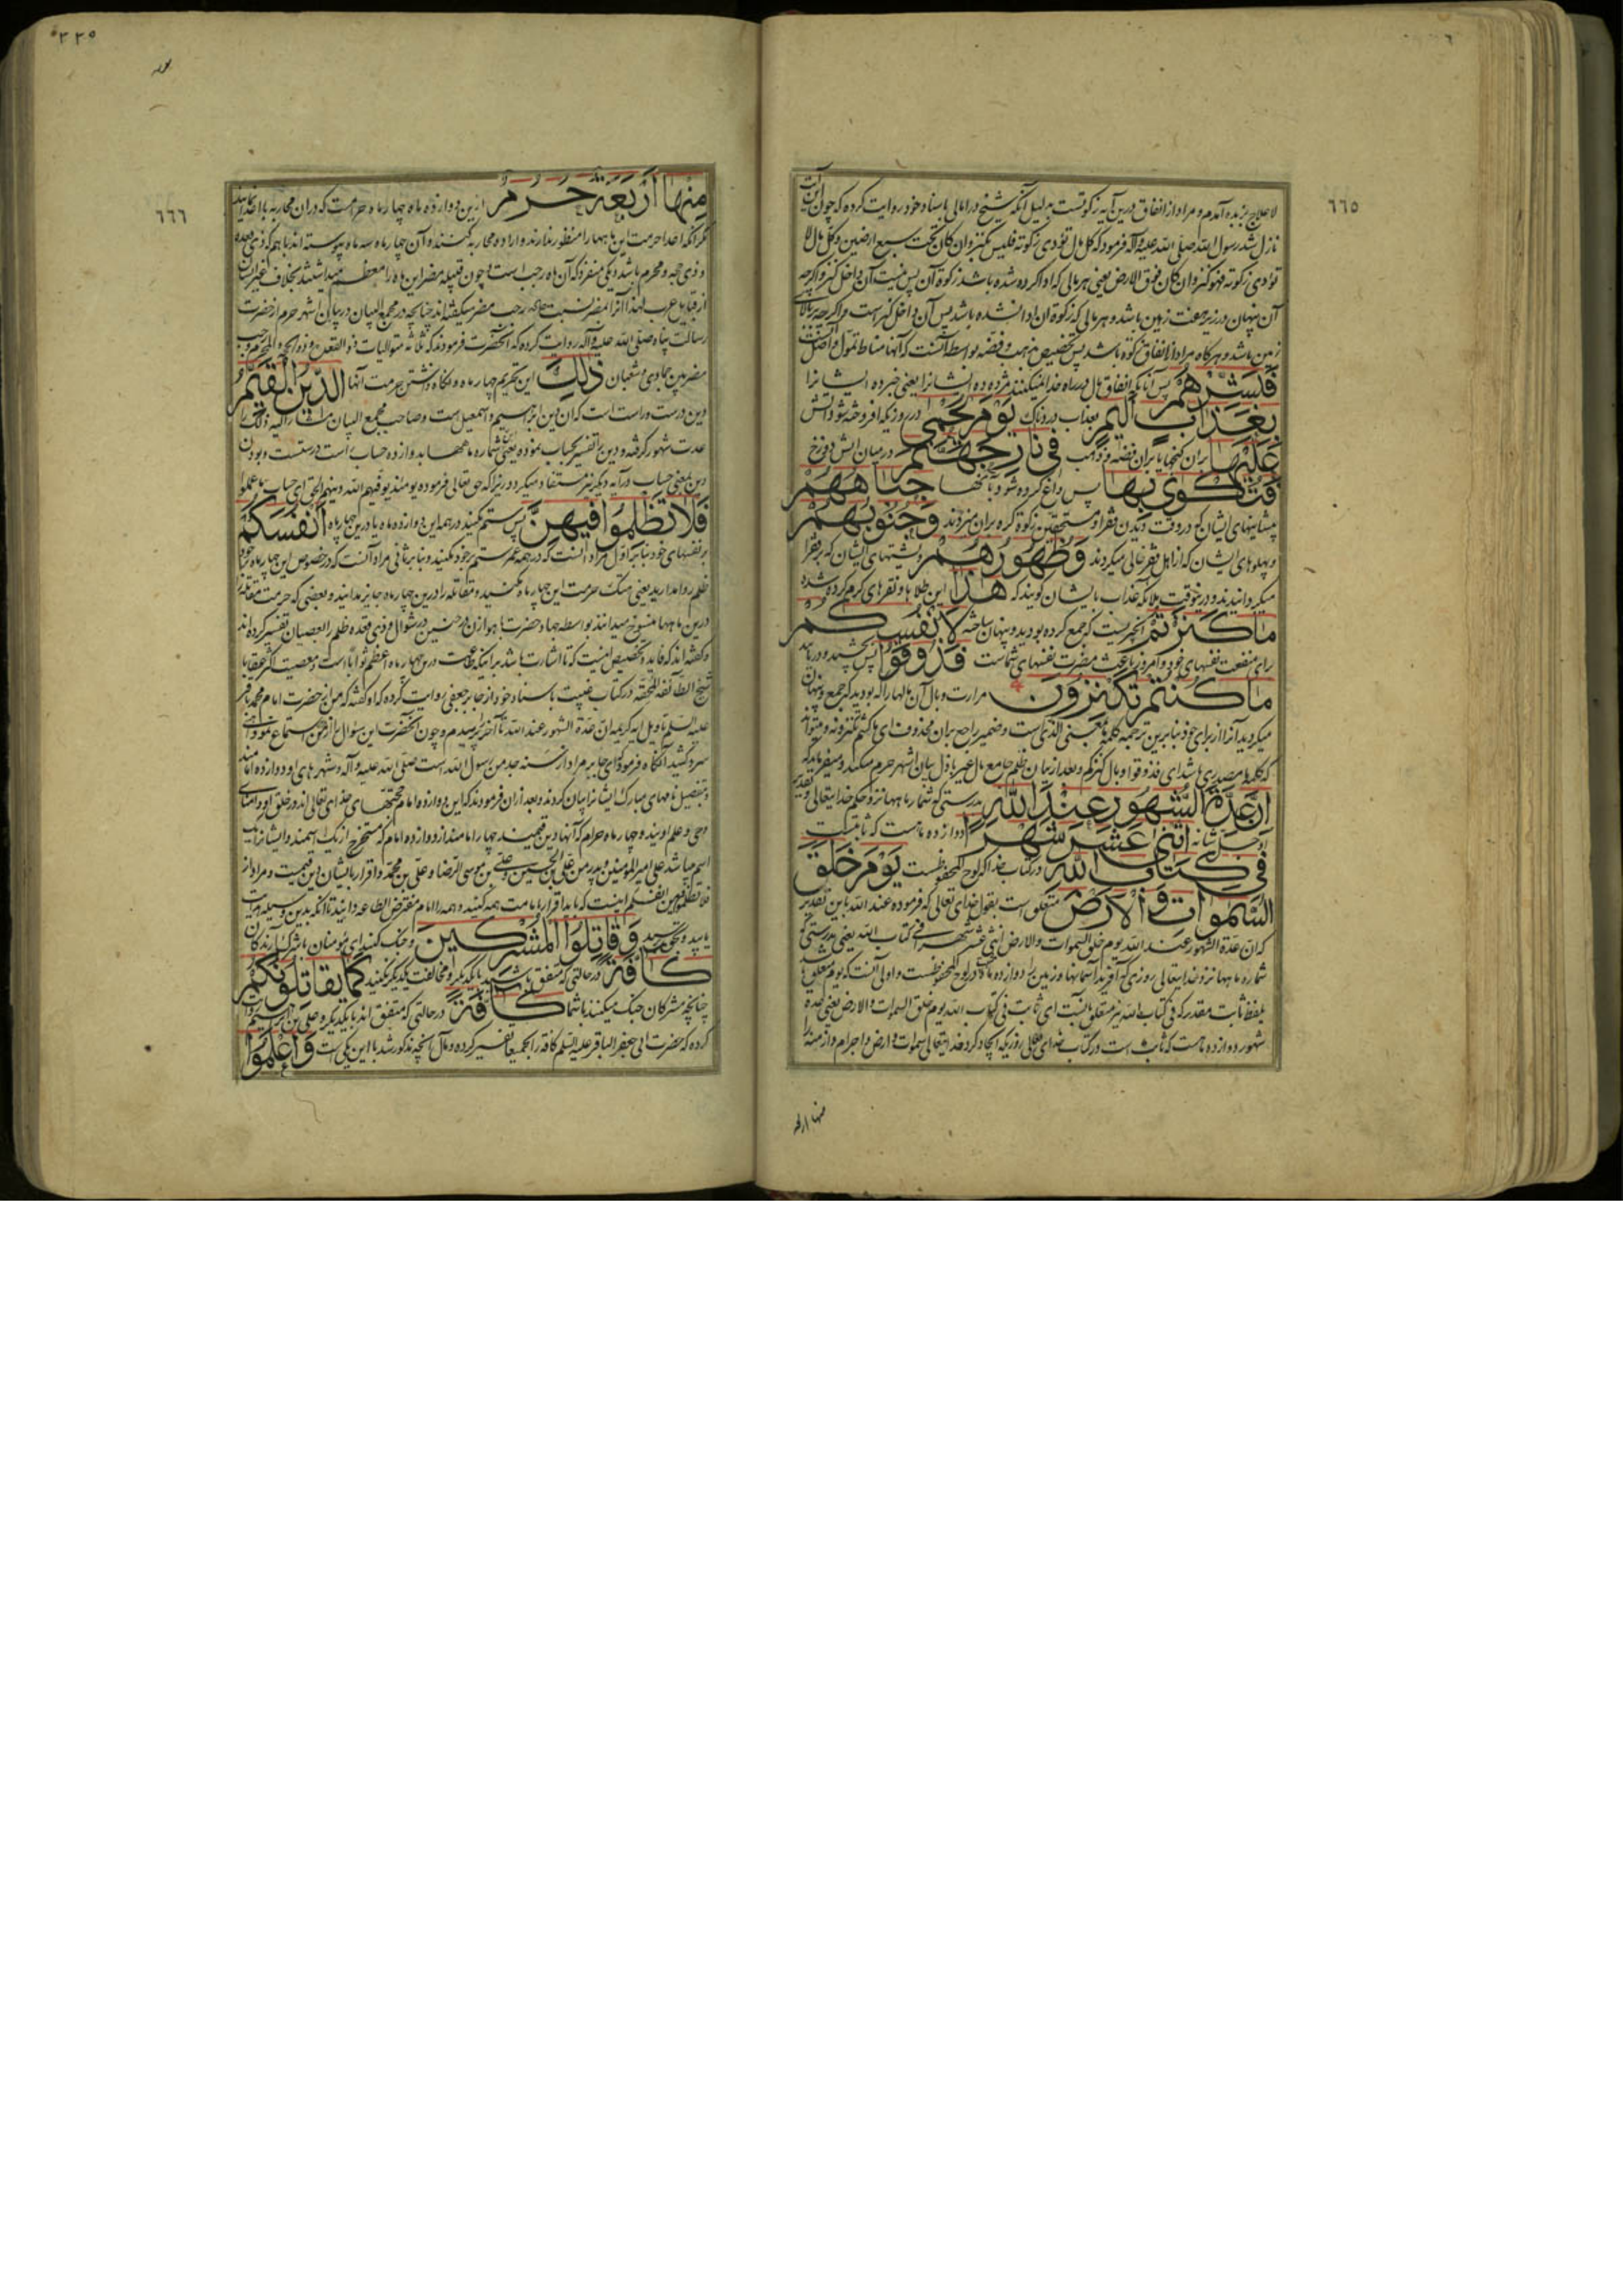 ٦٦٥
لاعلاج بزبده آمدم و مراد از انفاق درین آیه زکوتست بدلیل آنکه شیخ در امالی باسناد خود روایت کرده که چون این آیت
نازل شد رسول الله صلی الله علیه وآله فرمود که کل مال تؤدی زکوته فلیس بکنز وان کان تحت سبع ارضین وکل مال لا
تؤدی زکوته فهو کنز وان کان فوق الارض یعنی هر مالی که ادا کرده شده باشد زکوة آن پس نیست آن داخل کنز و اگرچه
آن پنهان در زیر هفت زمین باشد و هر مالی که زکوة آن ادا نشده باشد پس آن داخل کنز است و اگرچه بر بالای
زمین باشد و هرکاه مراد از انفاق زکوة باشد پس تخصیص ذهب وفضه بواسطه آنست که آنها مناط تمول و اصل
فَبَشِّرْهُمْ پس آنانکه انفاق مال در راه خدا نمیکنند مژده ده ایشانرا یعنی خبر ده ایشانرا
بِعَذَابٍ اَلِيمٍ بعذاب دردناک يَوْمَ يُحْمٰى در روزیکه افروخته شود آتش
عَلَيْهَا بران کنجها یا بران فضه و ذهب فِي نَارِ جَهَنَّمَ در میان آتش دوزخ
فَتُكْوٰى بِهَا پس داغ کرده شود جِبَاهُهُمْ
پیشانیهای ایشان که در وقت دیدن فقرا و مستحقین زکوة کره بران میزدند وَجُنُوبُهُمْ
و پهلوهای ایشان که از اهل فقر خالی میکردند وَظُهُورُهُمْ و پشتهای ایشان که بر فقرا
میکردانیدند و درینوقت ملائکه عذاب بایشان کویند که هٰذَا این طلاها و نقرهای کرم کرده شده
مَا كَنَزْتُمْ آنچیزیست که جمع کرده بودید و پنهان ساخته لِاَنْفُسِكُمْ
برای منفعت نفسهای خود و امروز باعث مضرت نفسهای شماست فَذُوقُوا پس بچشید و دریابید
مَا كُنْتُمْ تَكْنِزُونَ مرارت و بال آن مالها را که بودید که جمع و پنهان
میکردید آنرا از برای خود بنابرین ترجمه کلمه ما بمعنی الذی است و ضمیر راجع بران محذوف ای ما کنتم تکنزونه و میتواند
که کلمه ما مصدری باشد ای فذوقوا وبال کنزکم و بعد از بیان ظلم جامع مال غیر باذل بیان اشهر حرم میکند و میفرماید که
اِنَّ عِدَّةَ الشُّهُورِ عِنْدَ اللّٰهِ بدرستی که شمار ماهها نزد حکم خدایتعالی و تقدیر
او جل شانه اثْنٰى عَشَرَ شَهْرًا دوازده ماهست که ثابتست
فِي كِتَابِ اللّٰهِ در کتاب خدا که لوح محفوظست يَوْمَ خَلَقَ
السَّمٰوَاتِ وَالْاَرْضَ متعلق است بقول خدای تعالی که فرموده عند الله باین تقدیر
که ان عدة الشهور عند الله یوم خلق السموات والارض اثنی عشر شهرا فی کتاب الله یعنی بدرستی که
شماره ماهها نزد خدایتعالی روزی که آفرید آسمانها و زمین را دوازده ماه در لوح محفوظست و اولی آنست که یوم متعلق باشد
بلفظ ثابت مقدر که فی کتاب الله نیز متعلق بآنست ای ثابت فی کتاب الله یوم خلق السموات والارض یعنی عده
شهور دوازده ماهست که ثابت است در کتاب خدای تعالی روزیکه ایجاد کرد خدایتعالی سموات و ارض و اجرام و ازمنه را
منها اربعة
٢٣٥
٦٦٦
مِنْهَا اَرْبَعَةٌ حُرُمٌ ازین دوازده ماه چهار ماه حرامست که دران محاربه با اعدا نمایند
مکر آنکه اعدا حرمت این ماهها را منظور ندارند و اراده محاربه کنند و آن چهار ماه سه ماه پیوسته اند باهم که ذی قعده
و ذی حجه و محرم باشد و یکی منفرد که آن ماه رجب است و چون قبیله مضر این ماه را معظم میداشتند بخلاف غیر ایشان
از قبایل عرب لهذا آنرا بمضر نسبت داده رجب مضر میکفته اند چنانچه در مجمع البیان در بیان اشهر حرم از حضرت
رسالت پناه صلی الله علیه وآله روایت کرده که آنحضرت فرمودند که ثلاثة متوالیات ذو القعده و ذو الحجه والمحرم و رجب
مضر بین جمادی و شعبان ذٰلِكَ این تحریم چهار ماه و نکاه داشتن حرمت آنها الدِّينُ الْقَيِّمُ
دین درست و راست است که آن دین ابراهیم و اسمعیل است و صاحب مجمع البیان مشار الیه ذلک را
عدت شهور کرفته و دین را تفسیر بحساب نموده یعنی شماره ماهها بدوازده حساب راست درستست و بودن
دین بمعنی حساب در آیه دیگر نیز مستفاد میکردد زیرا که حق تعالی فرموده یومئذ یوفیهم الله دینهم الحق ای حساب ما عملوا
فَلَا تَظْلِمُوا فِيهِنَّ پس ستم مکنید در همه این دوازده ماه یا درین چهار ماه اَنْفُسَكُمْ
بر نفسهای خود بنابر اول مراد آنست که در همه عمر ستم بر خود مکنید و بنابر ثانی مراد آنست که در خصوص این چهار ماه بر خود
ظلم روا مدارید یعنی هتک حرمت این چهار ماه مکنید و مقاتله را درین چهار ماه جایز مدانید و بعضی که حرمت مقاتله
درین ماهها منسوخ میدانند بواسطه جهاد حضرت با هوازن در حنین در شوال و ذی قعده ظلم را بعصیان تفسیر کرده اند
و کفته اند که فایده تخصیص اینست که تا اشارت باشد برانکه طاعت درین چهار ماه اعظم ثوابا است و معصیت اکثر عقابا
شیخ الطائفة المحقه در کتاب غیبت باسناد خود از جابر جعفی روایت کرده که او کفته که من از حضرت امام محمد باقر
علیه السلم تاویل آیه کریمه ان عدة الشهور عند الله تا آخر پرسیدم و چون آنحضرت این سؤال از من استماع نمود آهی
سرد کشید آنکاه فرمود که ای جابر مراد از سنه جد من رسول الله است صلی الله علیه وآله و شهرهای او دوازده امامند
و بتفصیل نامهای مبارک ایشانرا بیان کردند و بعد ازان فرمودند که این دوازده امام حجتهای خدای تعالی اند در خلق او و امنای
وحی و علم اویند و چهار ماه حرام که آنها دین قیمند چهار امامند از دوازده امام که مستخرج از یک اسمند و ایشانرا یک
اسم میباشد علی امیر المؤمنین و پدر من علی بن الحسین و علی بن موسی الرضا و علی بن محمد و اقرار بایشان دین قیمست و مراد از
فلا تظلموا فیهن انفسکم اینست که باید اقرار بامامت همه کنید و همه را امام مفترض الطاعه دانید تا آنکه بدین وسیله هدایت
یابید وَقَاتِلُوا الْمُشْرِكِينَ و جنک کنید ای مؤمنان با شرک آرندکان
كَافَّةً در حالتی که متفق باشید با یکدیکر و مخالفت یکدیکر نکنید كَمَا يُقَاتِلُونَكُمْ
چنانچه مشرکان جنک میکنند با شما كَافَّةً در حالتی که متفق اند با یکدیکر و علی بن ابراهیم روایت
کرده که حضرت ابی جعفر الباقر علیه السلم کافه را بجمیعا تفسیر کرده و مآل آنچه مذکور شد با این یکی است وَاعْلَمُوا